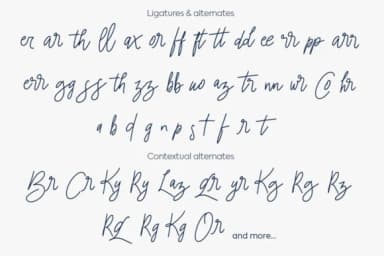 Ligatures & alternates
er ar th ll ax or ff ft tt dd ee rr pp arr
err gg ss th zz bb wo az tr nn wr Co hr
a b d g n p s t f r t
Contextual alternates
Br Cr Ky Ry Laz Qr yr Kg Rg Rz
Rd Rg Kg Or and more...